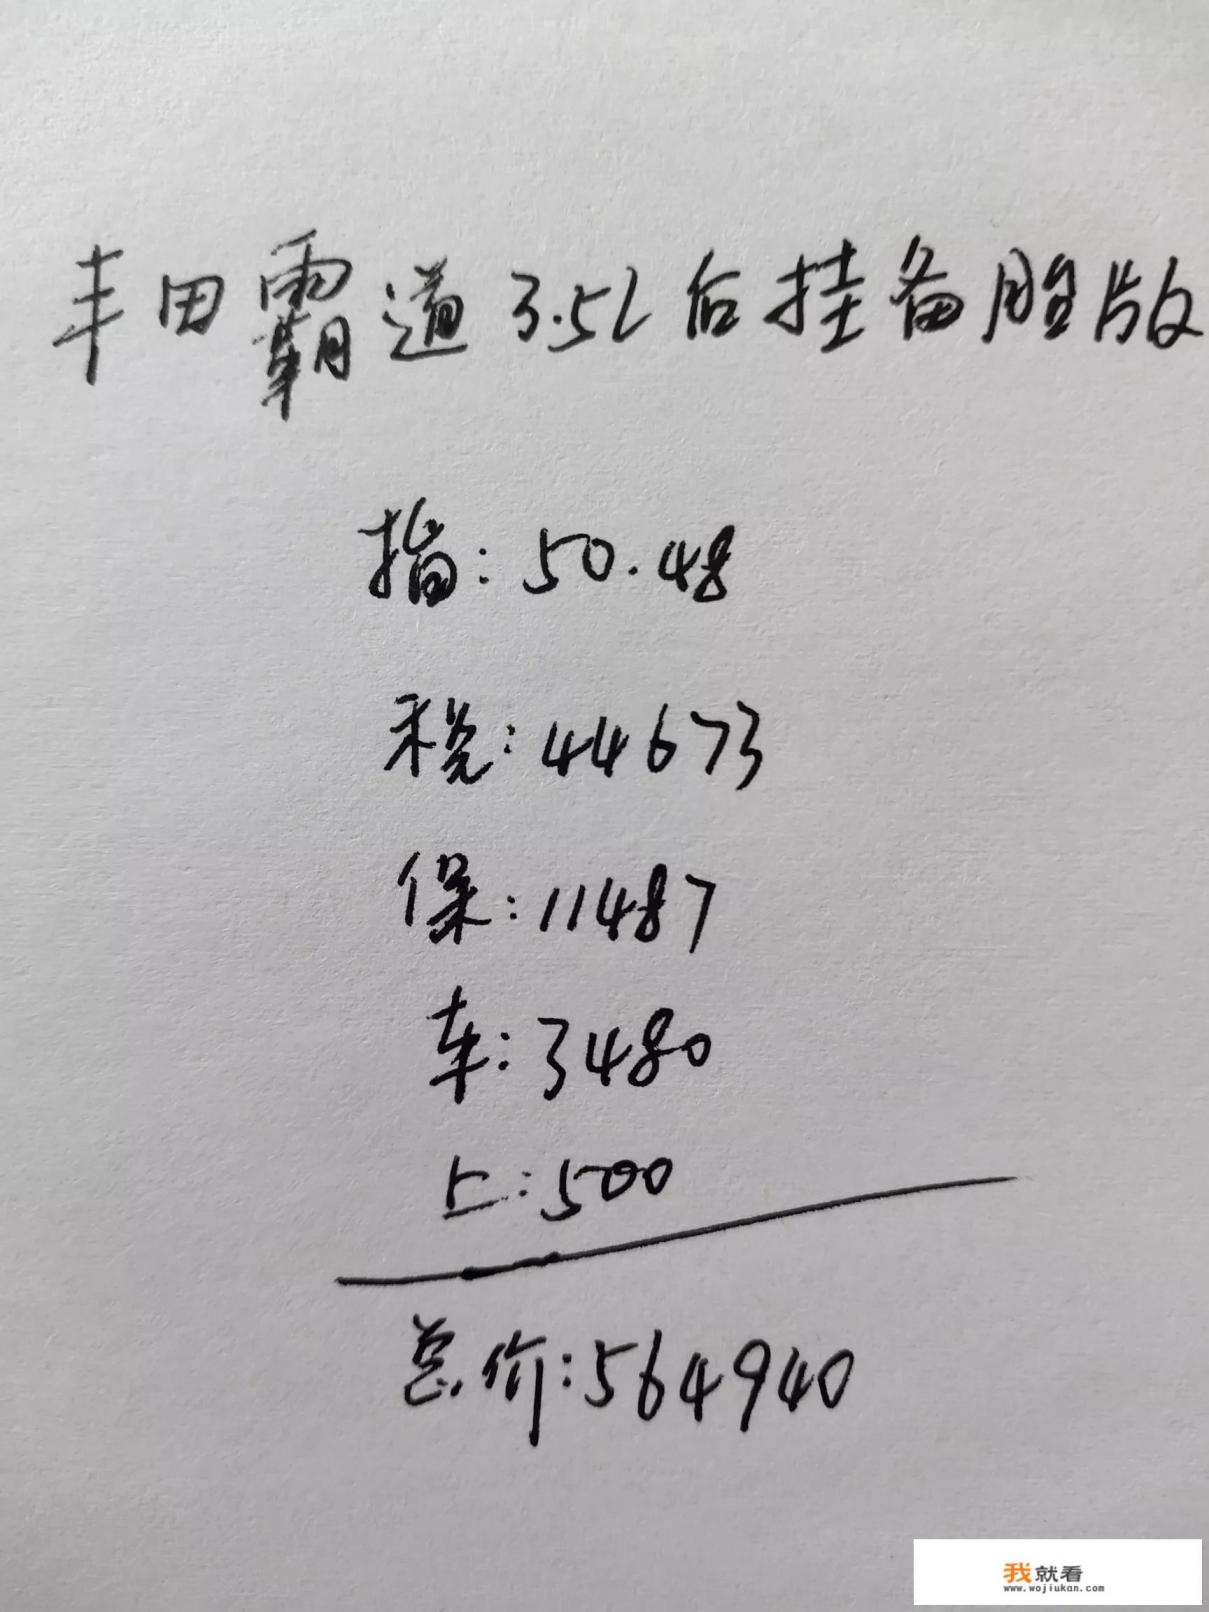 丰田霸道3.5L后挂备胎版
指:50.48
税:44673
保:11487
车:3480
上:500
总价:564940
我就看
www.wojiukan.com